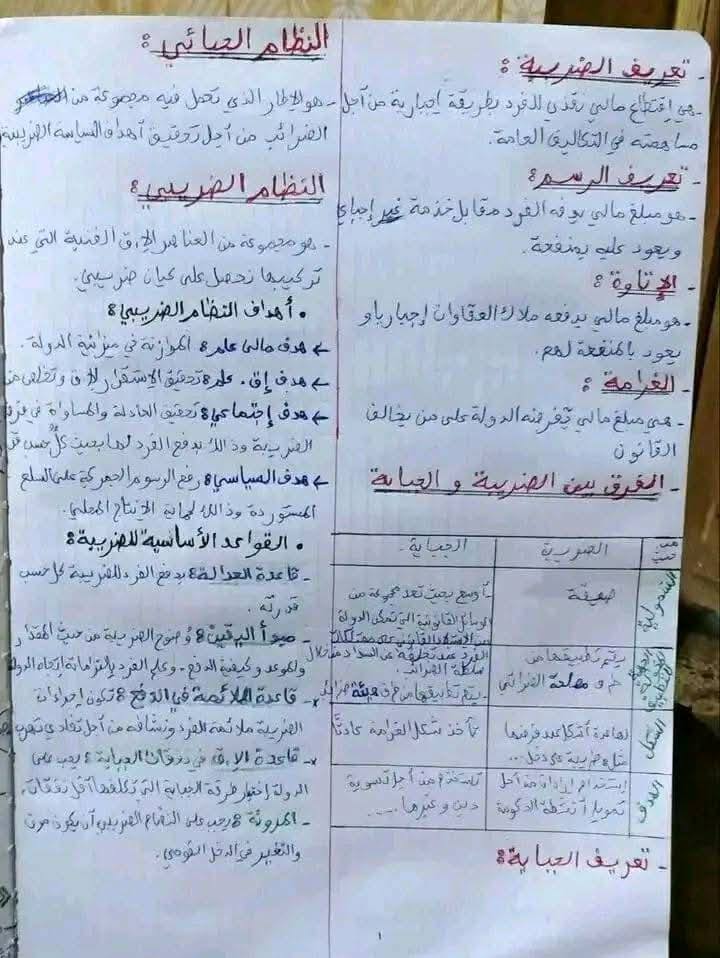 - تعريف الضريبة:
- هي إقتطاع مالي نقدي للفرد بطريقة إجبارية من أجل
مساهمته في التكاليف العامة.
- تعريف الرسم:
- هو مبلغ مالي يدفعه الفرد مقابل خدمة غير إجباري
ويعود عليه بمنفعة.
الإتاوة:
- هو مبلغ مالي يدفعه ملاك العقارات إجباريا و
يعود بالمنفعة لهم.
- الغرامة:
- هي مبلغ مالي تفرضه الدولة على من يخالف
القانون
- الفرق بين الضريبة و الجباية
من حيث
الضريبة
الجباية
الشمولية
ضيقة
- أوسع بحيث تعد مجموعة من
الوسائل القانونية التي تمكن الدولة
يتم تطبيقها من
مصلحة الضرائب
يتم تطبيقها من طرف هيئة
الشكل
مثل ضريبة على دخل...
تأخذ شكل الغرامة عادتا
الهدف
من أجل
تمويل أنشطة الحكومة
تستخدم من أجل تسوية
دين وغيرها......
- تعريف الجباية:
النظام الجبائي:
- هو الإطار الذي تعمل فيه مجموعة من
الضرائب من أجل تحقيق أهداف السياسة الضريبية
النظام الضريبي:
- هو مجموعة من العناصر الإق الفنية التي عند
تركيبها نحصل على كيان ضريبي.
• أهداف النظام الضريبي:
← هدف مالي عام: الموازنة في ميزانية الدولة.
← هدف إق. عام: تحقيق الاستقرار الإق و
← هدف إجتماعي: تحقيق العادلة والمساواة في
الضريبة وذلك بدفع الفرد لها بحيث كل حسب
← هدف السياسي: رفع الرسوم الجمركية على السلع
المستوردة وذلك لحماية الإنتاج المحلي.
• القواعد الأساسية للضريبة:
- قاعدة العدالة: يدفع الفرد للضريبة كل حسب
قدرته.
- مبدأ اليقين: وضوح الضريبة من حيث المقدار
والموعد وكيفية الدفع. وعلم الفرد بإلتزاماته اتجاه الدولة
x- قاعدة الملائمة في الدفع: تكون إجراءات
الضريبة ملائمة للفرد ونشاطه من أجل تفادي
x- قاعدة الإق في نفقات الجباية: يجب على
الدولة إختيار طرقة الجباية التي تكلفها أقل نفقات.
- المرونة: يجب على النظام الضريبي أن يكون مرن
والتغير في الدخل القومي.
١